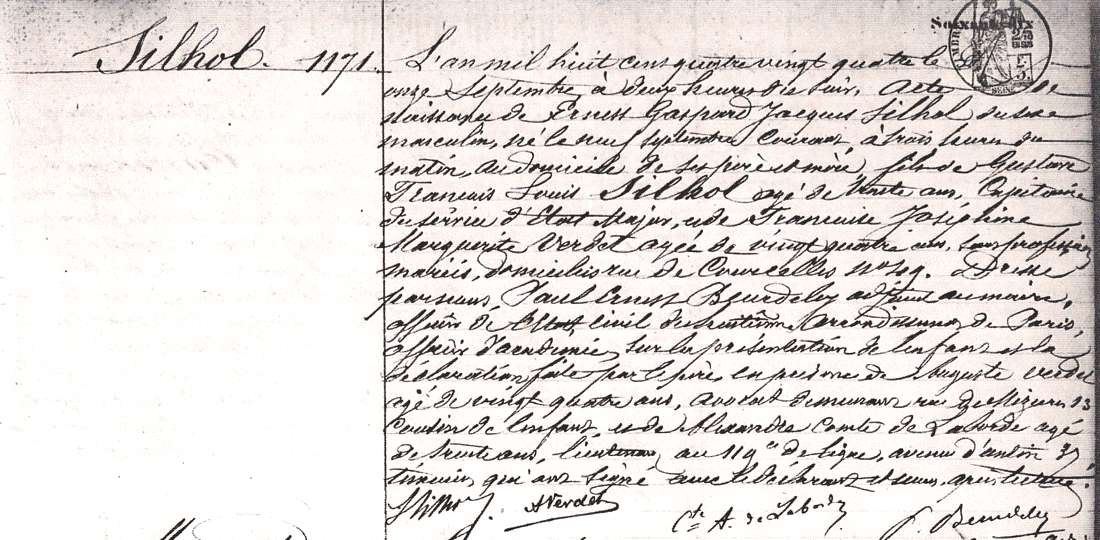 Silhol. 1171.
L'an mil huit cent quatre vingt quatre le
onze Septembre à deux heures du soir. Acte de
naissance de Ernest Gaspard Jacques Silhol du sexe
masculin, né le neuf septembre courant, à trois heures du
matin, au domicile de ses père et mère, fils de Gustave
Francois Louis Silhol agé de trente ans, Capitaine
du service d'Etat Major, et de Francoise Joséphine
Marguerite Verdet agée de vingt quatre ans, sans profession
mariés, domiciliés rue de Courcelles No Dressé
par nous, Paul Ernest Beurdeley adjoint au maire,
officier de l'Etat Civil du huitième Arrondissement de Paris,
officier d'académie, sur la présentation de l'enfant et la
déclaration faite par le père, en présence de Auguste Verdet
agé de vingt quatre ans, avocat demeurant rue de 13
Cousin de l'enfant, et de Alexandre Comte de Laborde agé
de trente ans, lieutenant au 119e de ligne, avenue d'antin 37
témoins, qui ont signé avec le déclarant et nous, après lecture.
Silhol. AVerdet
Cte A. de Laborde P. Beurdeley